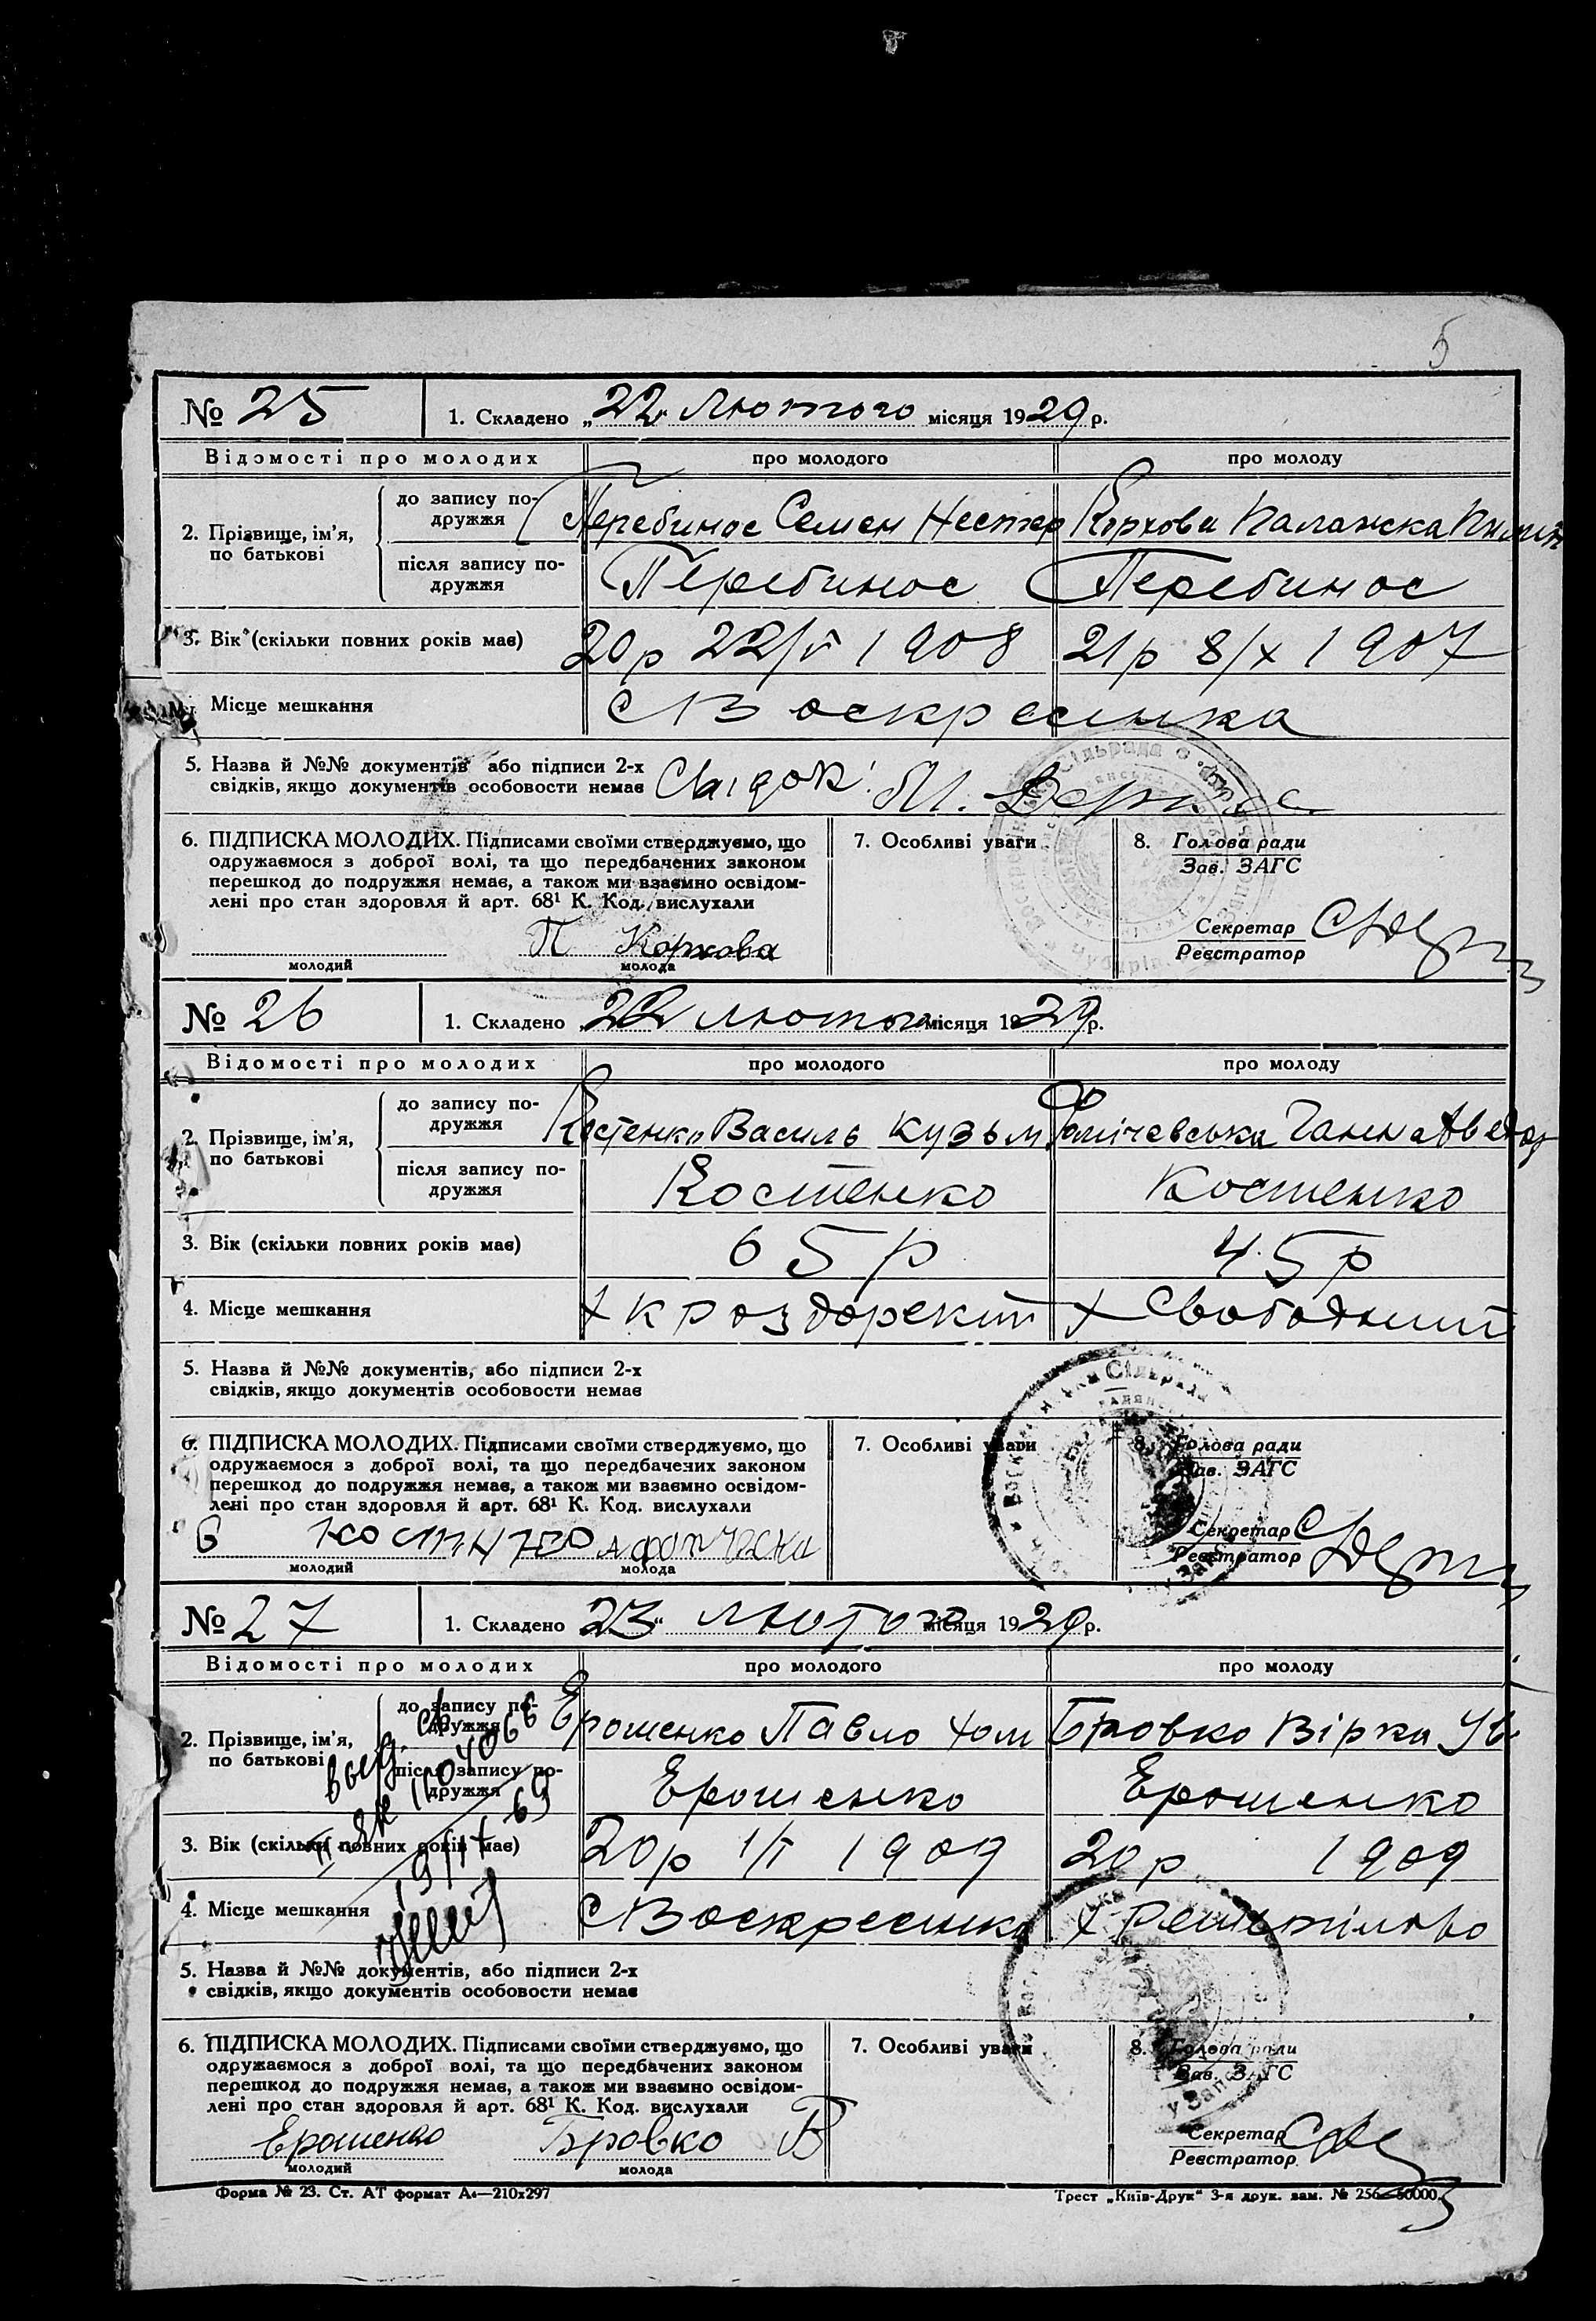 5
№ 25 1. Складено „22" Лютого місяця 1929 р.
Відомості про молодих про молодого про молоду
2. Прізвище, ім'я, по батькові
до запису подружжя Перебинос Семен Нестер Коркова Палажка
після запису подружжя Перебинос Перебинос
3. Вік (скільки повних років має) 20р 22/V 1908 21р 8/X 1907
Місце мешкання с Воскресенка
5. Назва й №№ документів або підписи 2-х Свідок:
свідків, якщо документів особовости немає
6. ПІДПИСКА МОЛОДИХ. Підписами своїми стверджуємо, що
одружаємося з доброї волі, та що передбачених законом
перешкод до подружжя немає, а також ми взаємно освідом-
лені про стан здоровля й арт. 68¹ К. Код. вислухали
П Коркова
молодий молода
7. Особливі уваги
8. Голова ради
Зав. ЗАГС
Секретар
Реєстратор
№ 26 1. Складено „22" лютого місяця 1929 р.
Відомості про молодих про молодого про молоду
2. Прізвище, ім'я, по батькові
до запису подружжя Костенко Василь Кузьм Ганна
після запису подружжя Костенко Костенко
3. Вік (скільки повних років має) 65р 45р
4. Місце мешкання х Свободний
5. Назва й №№ документів, або підписи 2-х
свідків, якщо документів особовости немає
6. ПІДПИСКА МОЛОДИХ. Підписами своїми стверджуємо, що
одружаємося з доброї волі, та що передбачених законом
перешкод до подружжя немає, а також ми взаємно освідом-
лені про стан здоровля й арт. 68¹ К. Код. вислухали
молодий молода
7. Особливі уваги
8. Голова ради
Зав. ЗАГС
Секретар
Реєстратор
№ 27 1. Складено „23" лютого місяця 1929 р.
Відомості про молодих про молодого про молоду
2. Прізвище, ім'я, по батькові
до запису подружжя Ерошенко Павло Хом Бровко Вірка
після запису подружжя Ерошенко Ерошенко
3. Вік (скільки повних років має) 20р 1/I 1909 20р 1909
4. Місце мешкання с Воскресенка х
5. Назва й №№ документів, або підписи 2-х
свідків, якщо документів особовости немає
6. ПІДПИСКА МОЛОДИХ. Підписами своїми стверджуємо, що
одружаємося з доброї волі, та що передбачених законом
перешкод до подружжя немає, а також ми взаємно освідом-
лені про стан здоровля й арт. 68¹ К. Код. вислухали
Ерошенко Бровко В
молодий молода
7. Особливі уваги
8. Голова ради
Зав. ЗАГС
Секретар
Реєстратор
Форма № 23. Ст. АТ формат А₄—210х297 Трест „Київ-Друк" 3-я друк. зам. № 256—50000.